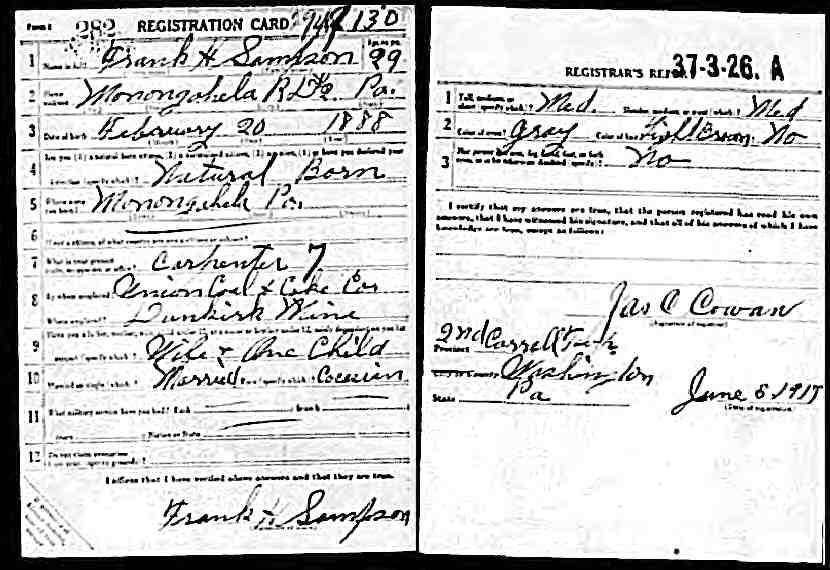 Form 1 282 REGISTRATION CARD 130
1 Name in full Frank H Sampson Age in yrs. 29
2 Home address Monongahela R.D.#2. Pa.
3 Date of birth February 20 1888
4 Are you (1) a natural born citizen, (2) a naturalized citizen, (3) an alien, (4) or have you declared your
intention (specify which)? Natural Born
5 Where were you born? Monongahela Pa.
6 If not a citizen, of what country are you a citizen or subject?
7 What is your present trade, occupation, or office? Carpenter 7
8 By whom employed? Union Coal & Coke Co
Where employed? Dunkirk Mine
9 Have you a father, mother, wife, child under 12, or a sister or brother under 12, solely dependent on you for
support (specify which)? Wife & One Child
10 Married or single (which)? Married Race (specify which)?
11 What military service have you had? Rank ; branch ;
years ; Nation or State
12 Do you claim exemption from draft (specify grounds)?
I affirm that I have verified above answers and that they are true.
Frank H Sampson
REGISTRAR'S REPORT 37-3-26. A
1 Tall, medium, or short (specify which)? Med. Slender, medium, or stout (which)? Med
2 Color of eyes? Gray Color of hair? Light Brown. No
3 Has person lost arm, leg, hand, foot, or both eyes, or is he otherwise disabled (specify)? No
I certify that my answers are true, that the person registered has read his own
answers, that I have witnessed his signature, and that all of his answers of which I have
knowledge are true, except as follows:
Jas C Cowan
(Signature of registrar)
Precinct 2nd Carroll
Washington
State Pa June 5 1917
(Date of registration)